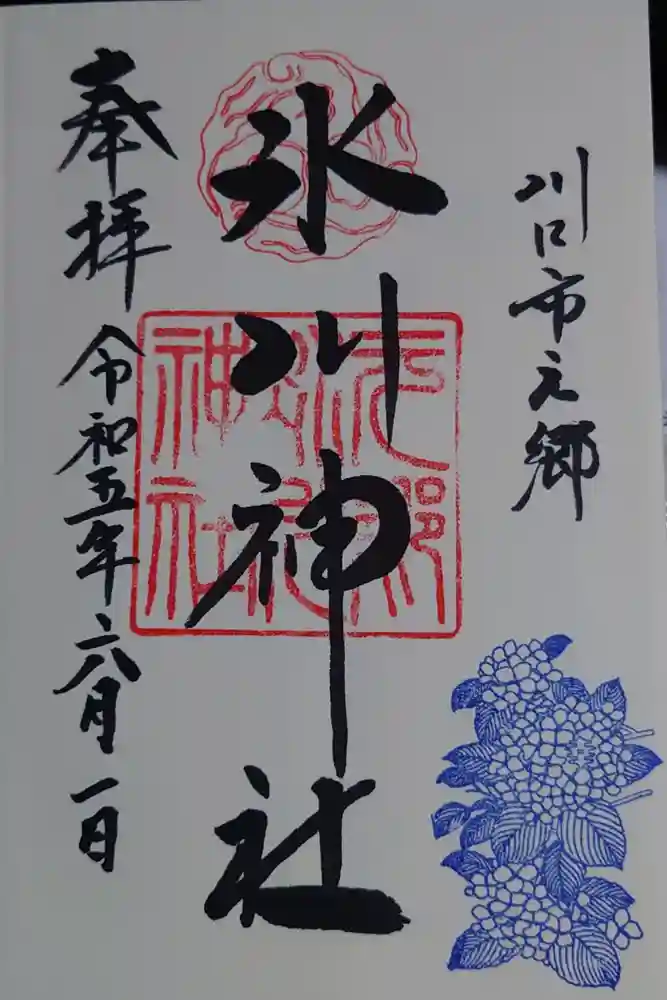 川口市元郷
氷川神社
奉拝
令和五年六月一日
元郷氷川神社